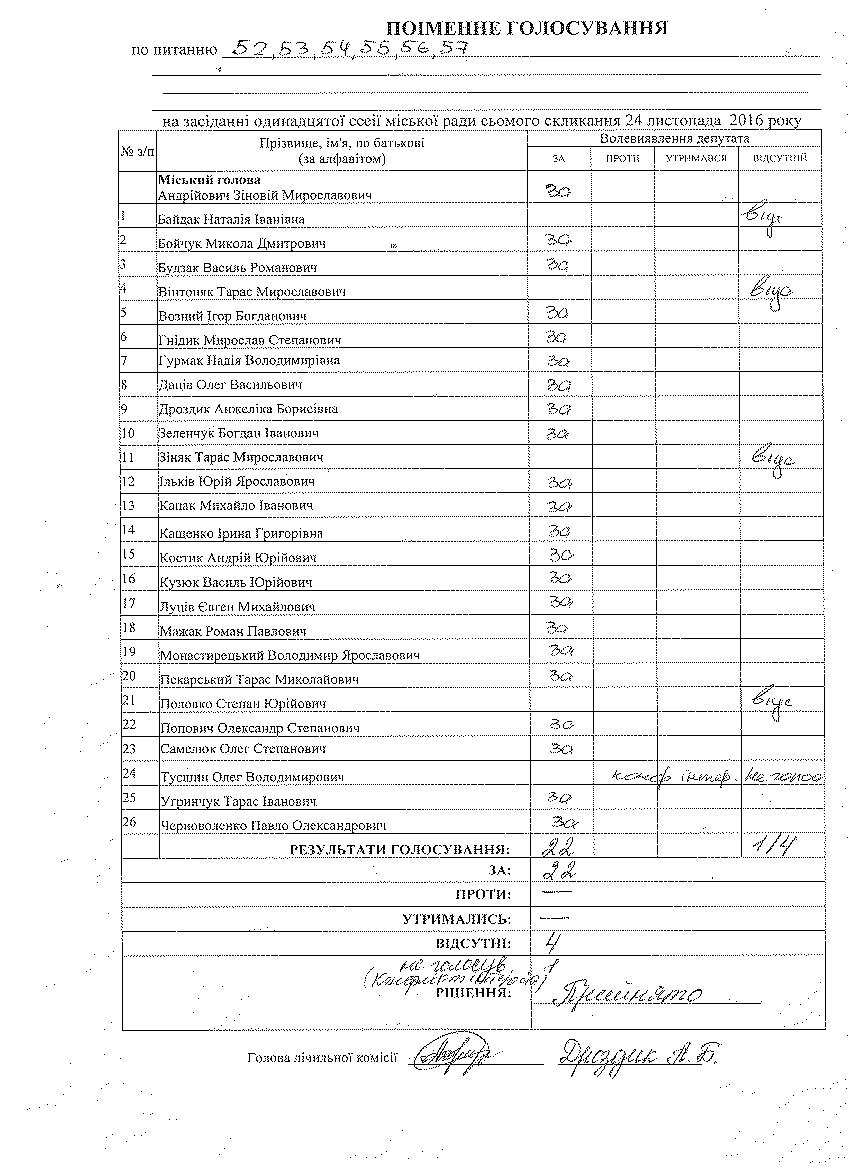 ПОІМЕННЕ ГОЛОСУВАННЯ
по питанню 52,53,54,55,56,57
на засіданні одинадцятої сесії міської ради сьомого скликання 24 листопада 2016 року
№ з/п Прізвище, ім'я, по батькові (за алфавітом) Волевиявлення депутата
ЗА ПРОТИ УТРИМАВСЯ ВІДСУТНІЙ
Міський голова
Андрійович Зіновій Мирославович за
1 Байдак Наталія Іванівна відс
2 Бойчук Микола Дмитрович за
3 Будзак Василь Романович за
4 Вінтоняк Тарас Мирославович відс
5 Возний Ігор Богданович за
6 Гнідик Мирослав Степанович за
7 Гурмак Надія Володимирівна за
8 Даців Олег Васильович за
9 Дроздик Анжеліка Борисівна за
10 Зеленчук Богдан Іванович за
11 Зіняк Тарас Мирославович відс
12 Ільків Юрій Ярославович за
13 Капак Михайло Іванович за
14 Кащенко Ірина Григорівна за
15 Костик Андрій Юрійович за
16 Кузюк Василь Юрійович за
17 Луців Євген Михайлович за
18 Мажак Роман Павлович за
19 Монастирецький Володимир Ярославович за
20 Пекарський Тарас Миколайович за
21 Поповко Степан Юрійович відс
22 Попович Олександр Степанович за
23 Самелюк Олег Степанович за
24 Тусшин Олег Володимирович конф інтер. не голос
25 Угринчук Тарас Іванович за
26 Черноволенко Павло Олександрович за
РЕЗУЛЬТАТИ ГОЛОСУВАННЯ: 22 1/4
ЗА: 22
ПРОТИ: —
УТРИМАЛИСЬ: —
ВІДСУТНІ: 4
не голосув 1
(Конфлікт інтересів)
РІШЕННЯ: Прийнято
Голова лічильної комісії Дроздик А.Б.